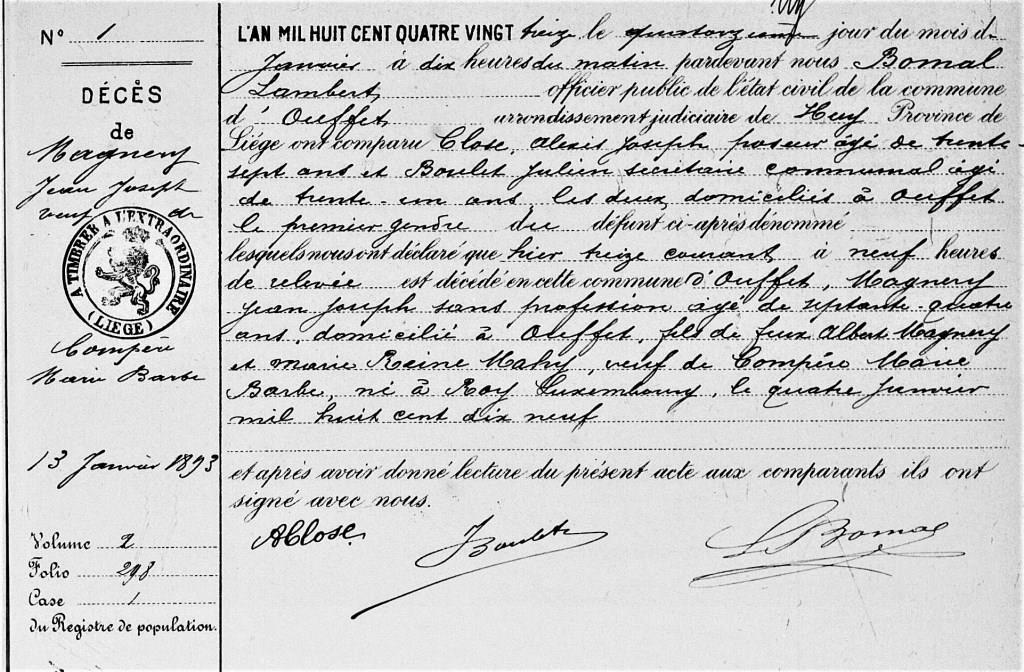 N° 1
DÉCÈS
de
Magnery
Jean Joseph
veuf de
A TIMBRER A L'EXTRAORDINAIRE
(LIEGE)
Compère
Marie Barbe
13 Janvier 1893
Volume 2
Folio 298
Case 1
du Registre de population.
L'AN MIL HUIT CENT QUATRE VINGT treize le quatorzième jour du mois d
Janvier à dix heures du matin pardevant nous Bomal
Lambert officier public de l'état civil de la commune
d' Ouffet arrondissement judiciaire de Huy Province de
Liége ont comparu Close, Alexis Joseph poseur âgé de trente
sept ans et Boulet Julien secrétaire communal âgé
de trente-un ans, les deux domiciliés à Ouffet
le premier gendre du défunt ci-après dénommé
lesquels nous ont déclaré que hier treize courant à neuf heures
de relevée est décédé en cette commune d'Ouffet, Magnery
Jean Joseph sans profession âgé de septante-quatre
ans, domicilié à Ouffet, fils de feux Albert Magnery
et Marie Reine Mahy, veuf de Compère Marie
Barbe, né à Roy Luxembourg, le quatre Janvier
mil huit cent dix neuf
et après avoir donné lecture du présent acte aux comparants ils ont
signé avec nous.
AClose
J Boulet
L Bomal